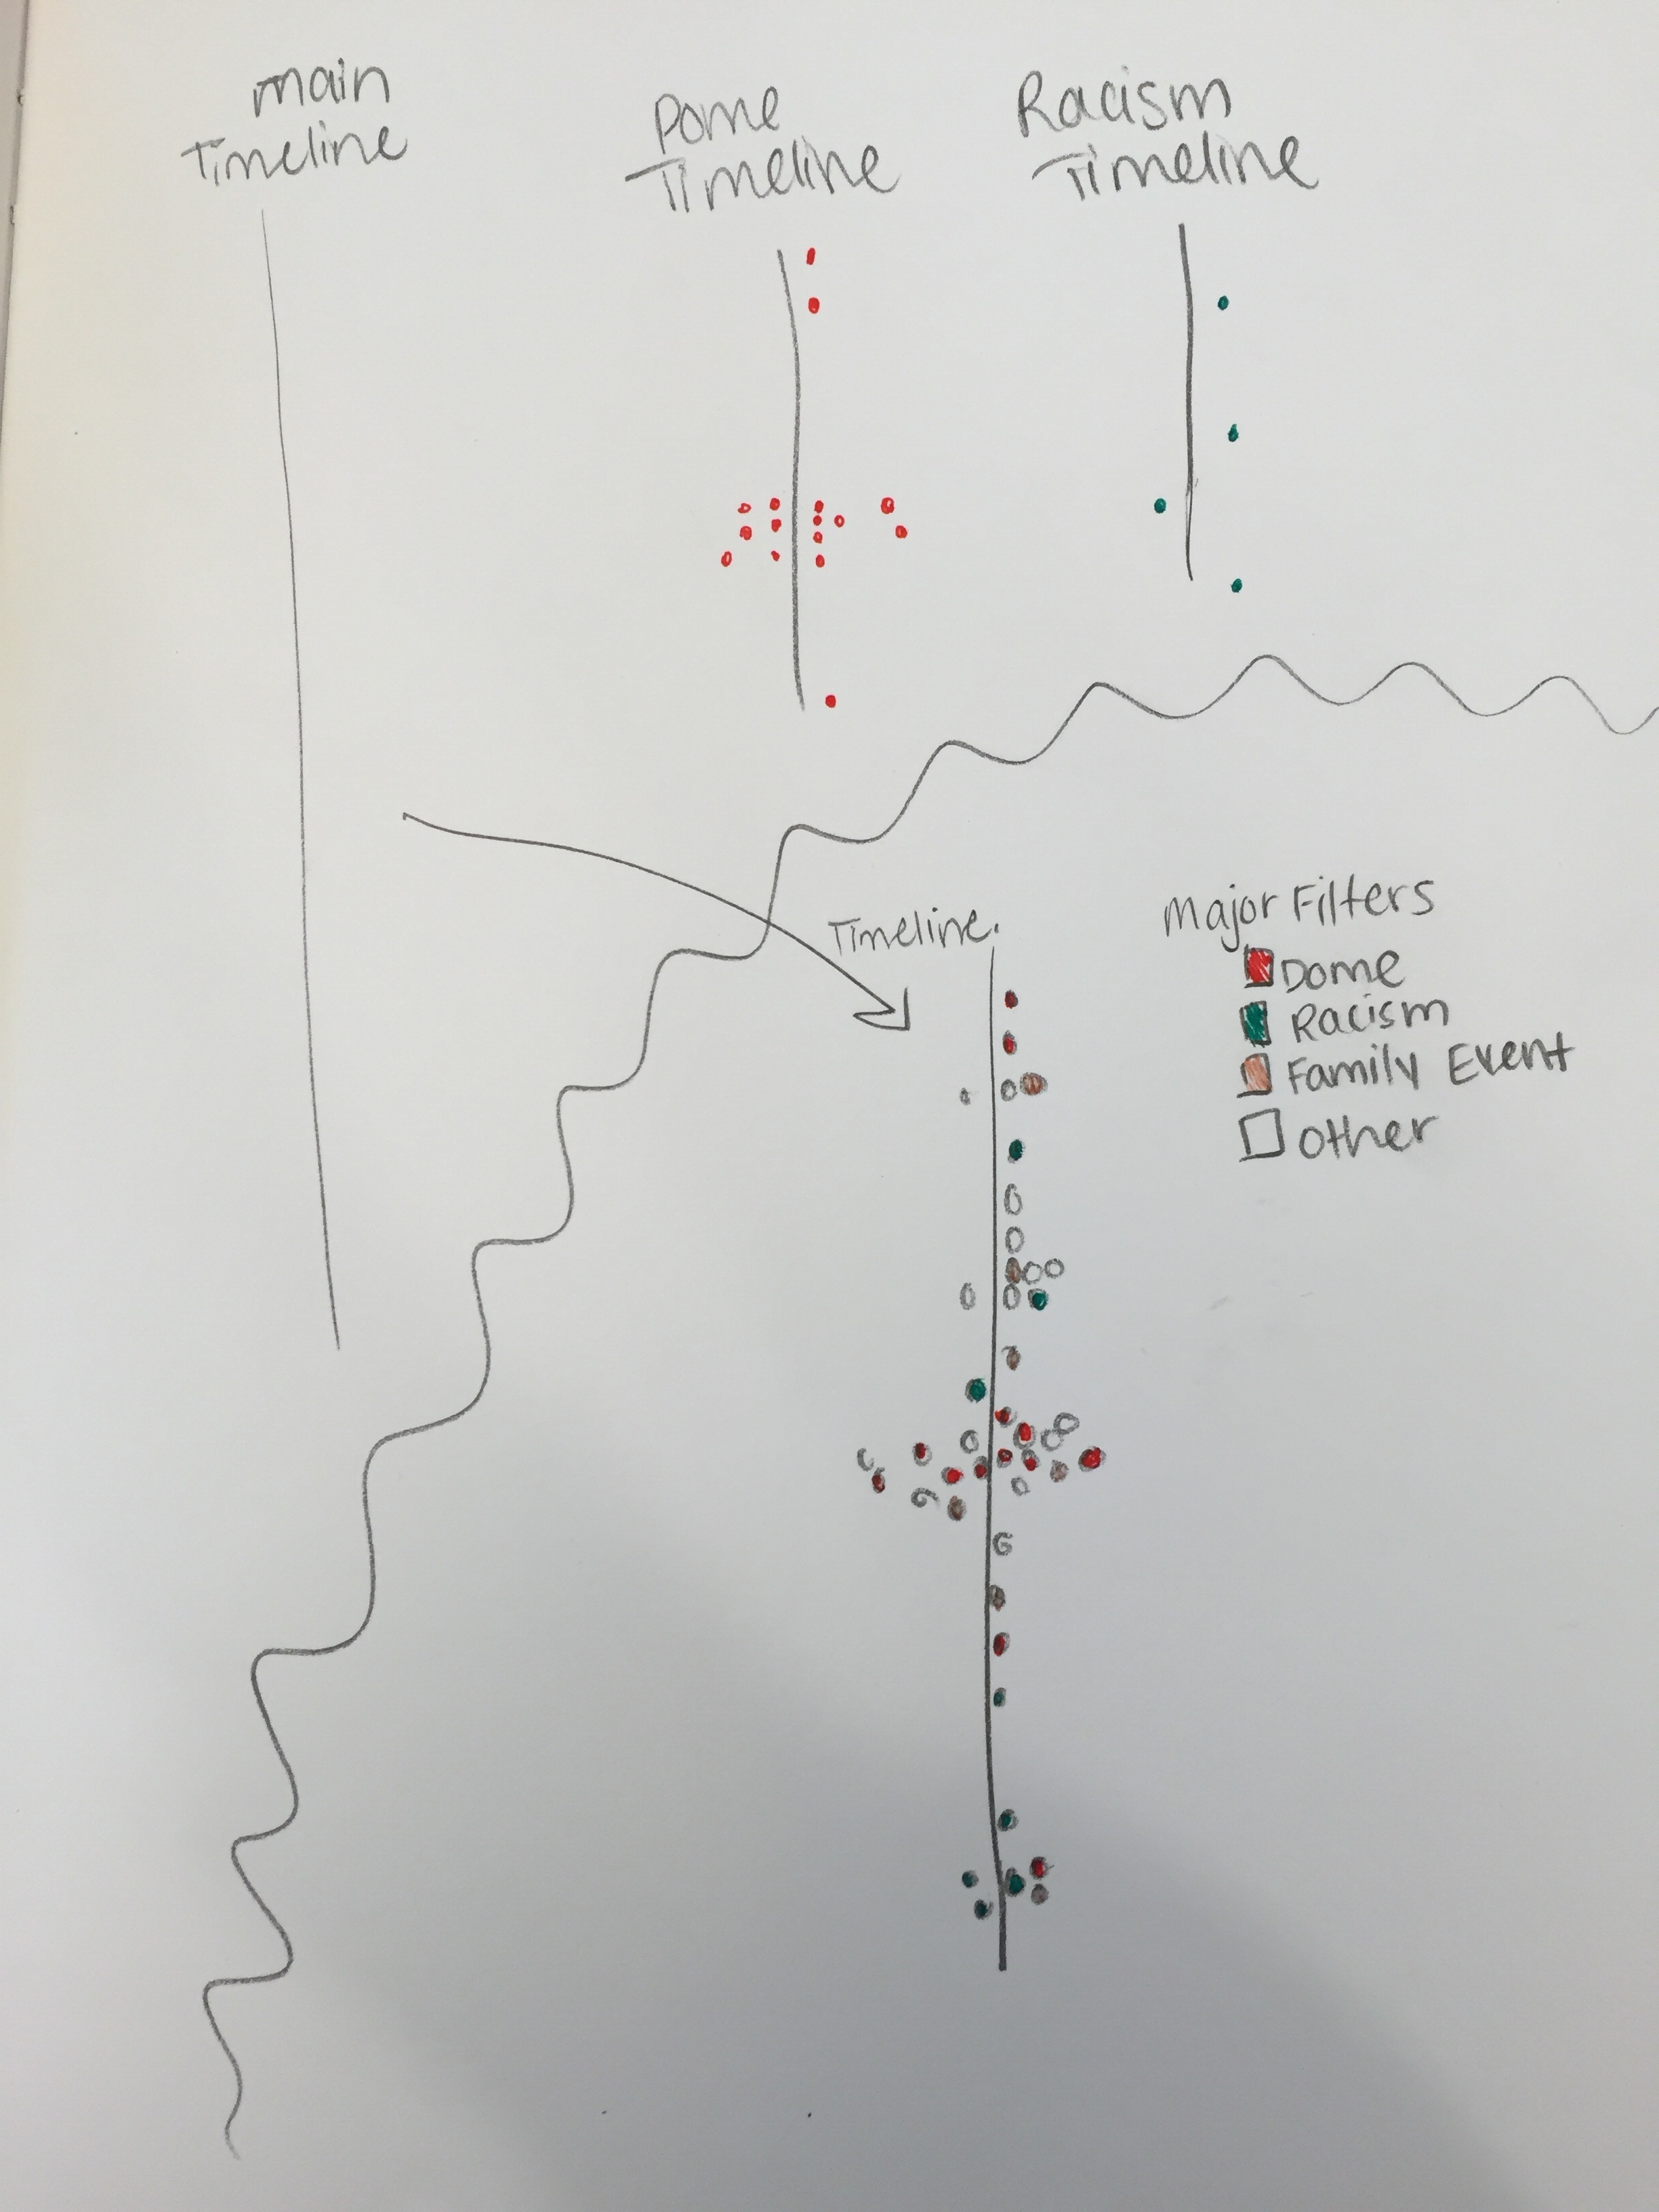 main
Timeline
Dome
Timeline
Racism
Timeline
Timeline.
Major Filters
Dome
Racism
Family Event
other